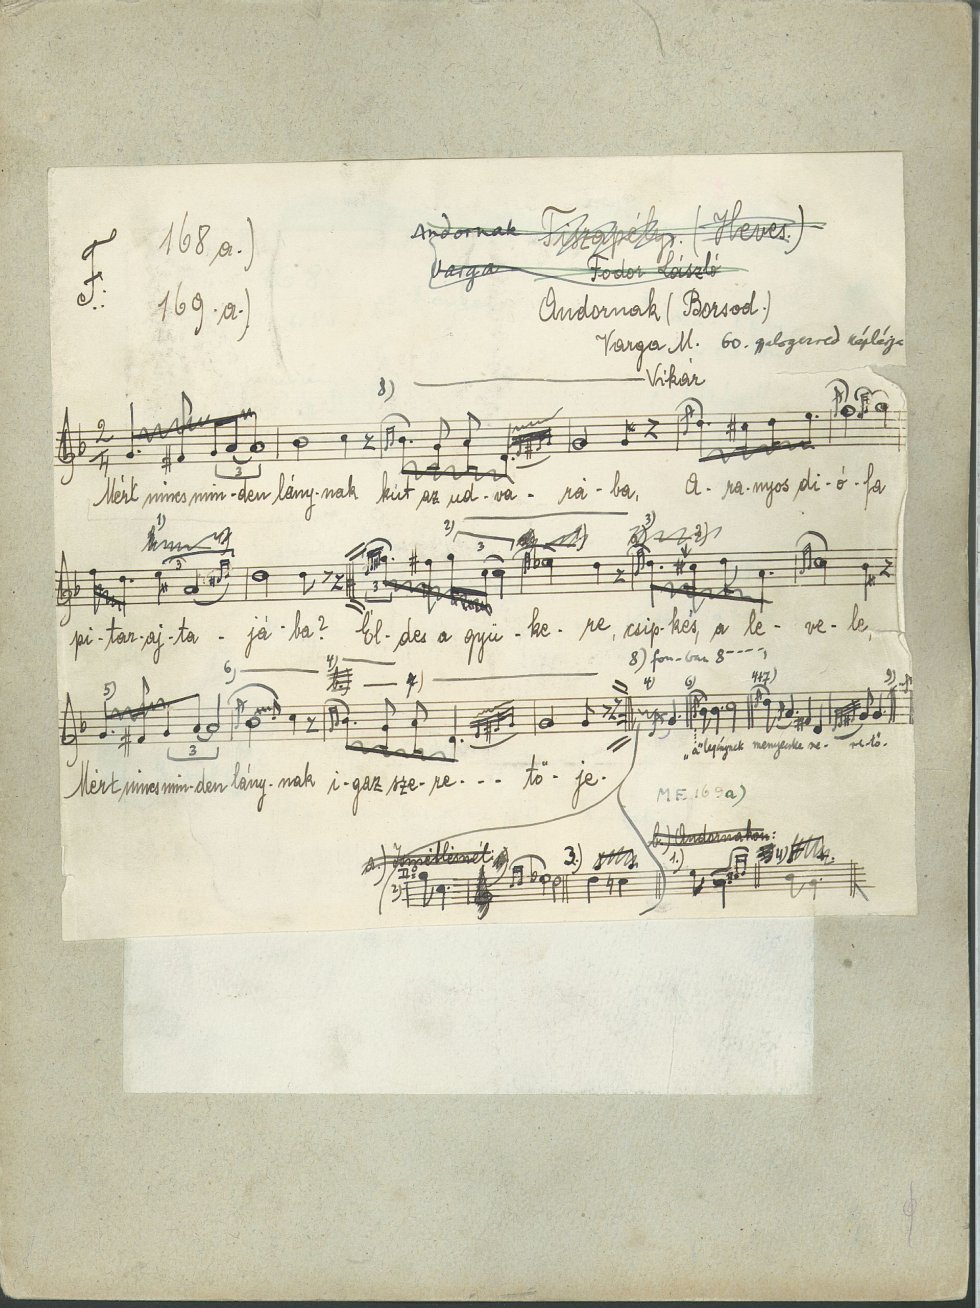 F.:
168 a.)
169. a.)
Andornak Tiszapélly. (Heves)
Varga Fodor László
Andornak (Borsod.)
Varga M. 60. gyalogezred káplárja
Vikár
8)
2
4
3
Mért nincs min-den lány-nak kút az ud-va- rá-ba, A-ra-nyos di-ó-fa
1)
3
2)
3
3)
3
pi-tar-aj-ta- já-ba? Él-des a gyü-ke-re, csip-kés, a le-ve-le,
8) fon-ban 8----,
5)
6)
4)
7)
4)
6)
4+7)
9)
3
Mért nincs min-den lány-nak i-gaz sze-re--- tő-je.
M.F. 169a)
a.) Ismétlésnél:
b.) Andornakon:
2)
3.)
1.)
4)